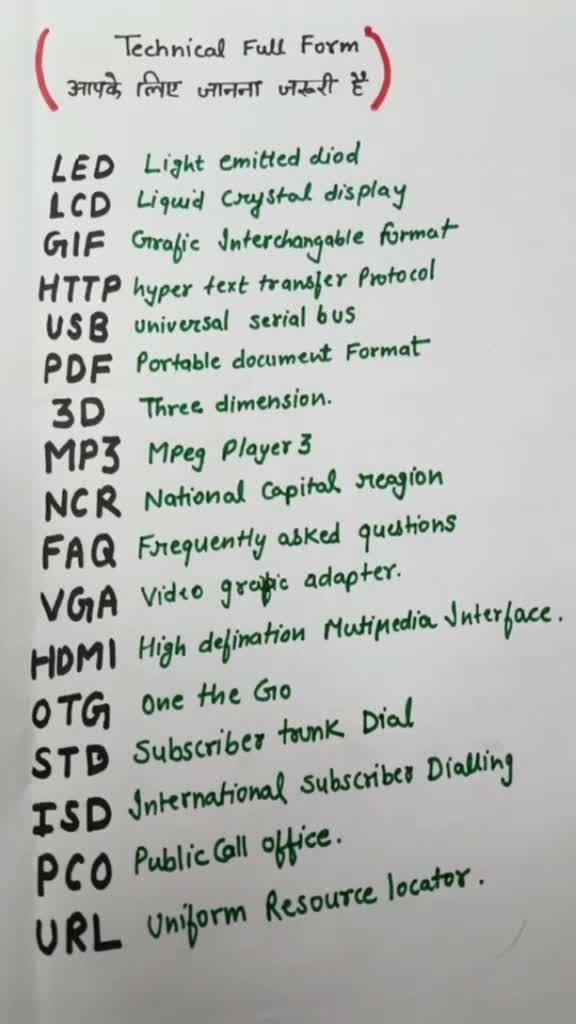 Technical Full Form
आपके लिए जानना जरूरी है
LED Light emitted diod
LCD Liquid Crystal display
GIF Grafic Interchangable format
HTTP hyper text transfer Protocol
USB universal serial bus
PDF Portable document Format
3D Three dimension.
MP3 Mpeg Player 3
NCR National Capital reagion
FAQ Frequently asked questions
VGA Video grafic adapter.
HDMI High defination Mutimedia Interface.
OTG One the Go
STD Subscriber trunk Dial
ISD International Subscriber Dialling
PCO Public Call office.
URL Uniform Resource locator.